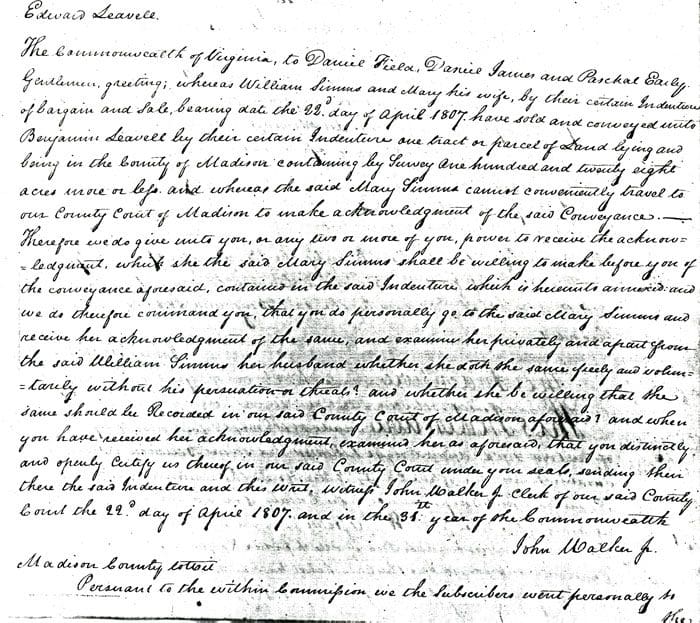 Edward Leavell.
The Commonwealth of Virginia, to Daniel Field, Daniel James and Paschal Early.
Gentlemen, greeting; whereas William Simms and Mary his wife, by their certain Indenture
of bargain and Sale, bearing date the 22d day of April 1807. have sold and conveyed unto
Benjamin Leavell by their certain Indenture one tract or parcel of Land lying and
being in the County of Madison containing by Survey One hundred and twenty eight
acres more or less. and whereas the said Mary Simms cannot conveniently travel to
our County Court of Madison to make acknowledgment of the said Conveyance. —
Therefore we do give unto you, or any two or more of you, power to receive the acknow=
=ledgment, which she the said Mary Simms shall be willing to make before you of
the conveyance aforesaid, contained in the said Indenture which is hereunto annexed: and
we do therefore command you, that you do personally go to the said Mary Simms and
receive her acknowledgment of the same, and examine her privately and apart from
the said William Simms her husband whether she doth the same freely and volun=
=tarily without his persuation or threats? and whether she be willing that the
same should be Recorded in our said County Court of Madison aforesaid? and when
you have received her acknowledgment, examined her as aforesaid, that you distinctly
and openly certify us thereof in our said County Court under your seals, sending then
there the said Indenture and this writ, witness John Walker Jr. Clerk of our said County
Court the 22d day of April 1807. and in the 31th year of the Commonwealth
John Walker Jr.
Madison County towit
Persuant to the within Commission we the Subscribers went personally to
the